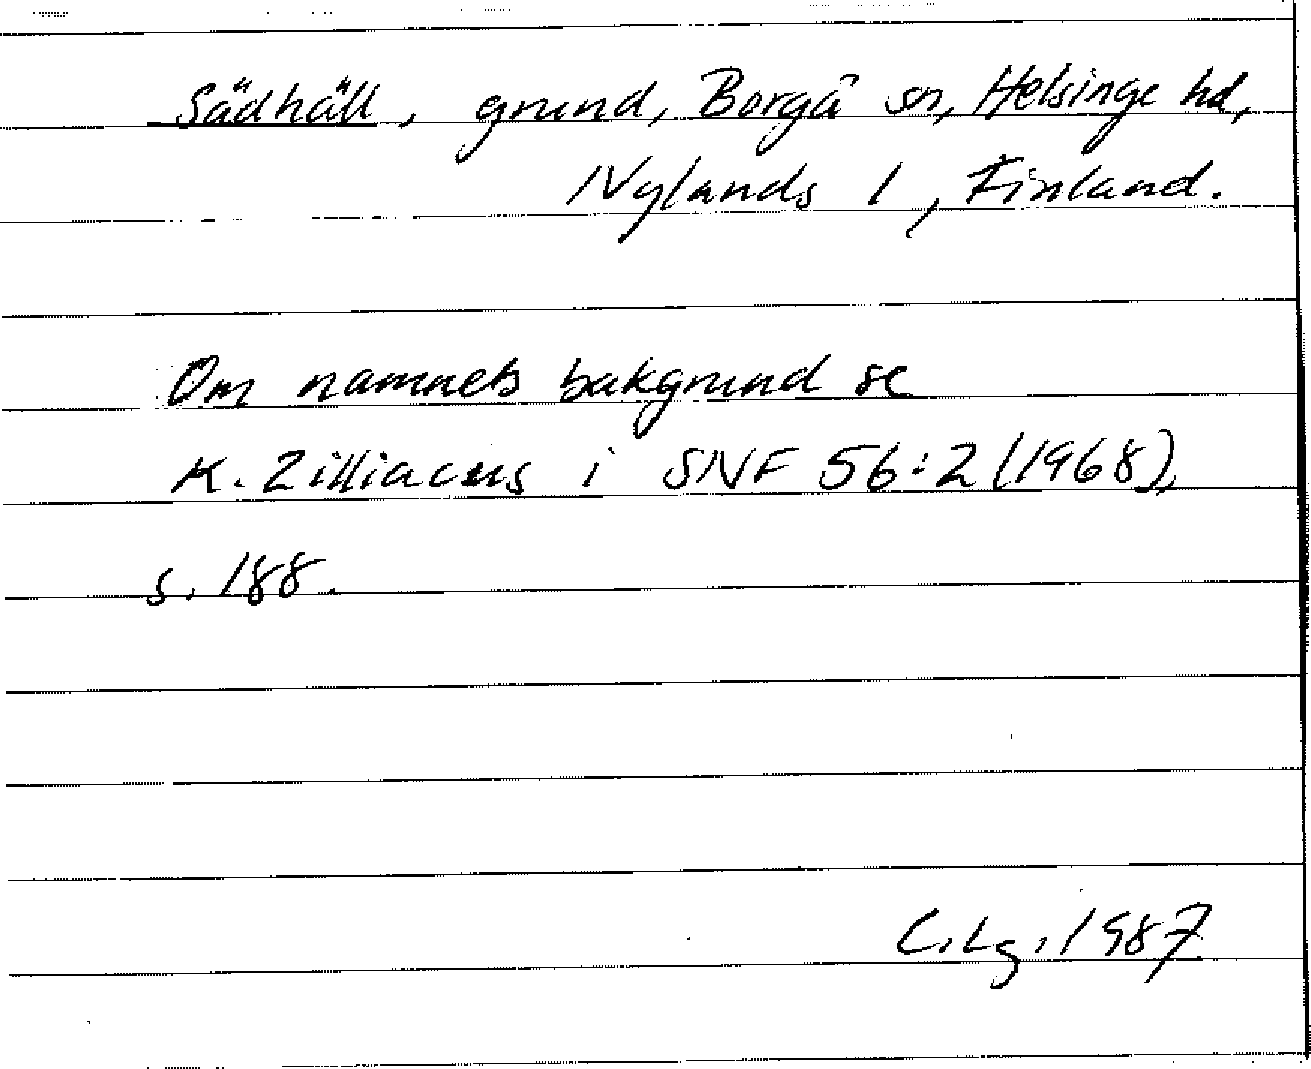 Sädhäll, grund, Borgå sn, Helsinge hd,
Nylands l, Finland.
Om namnets bakgrund se
K. Zilliacus i SNF 56:2 (1968),
s. 188.
C. Lg. 1987